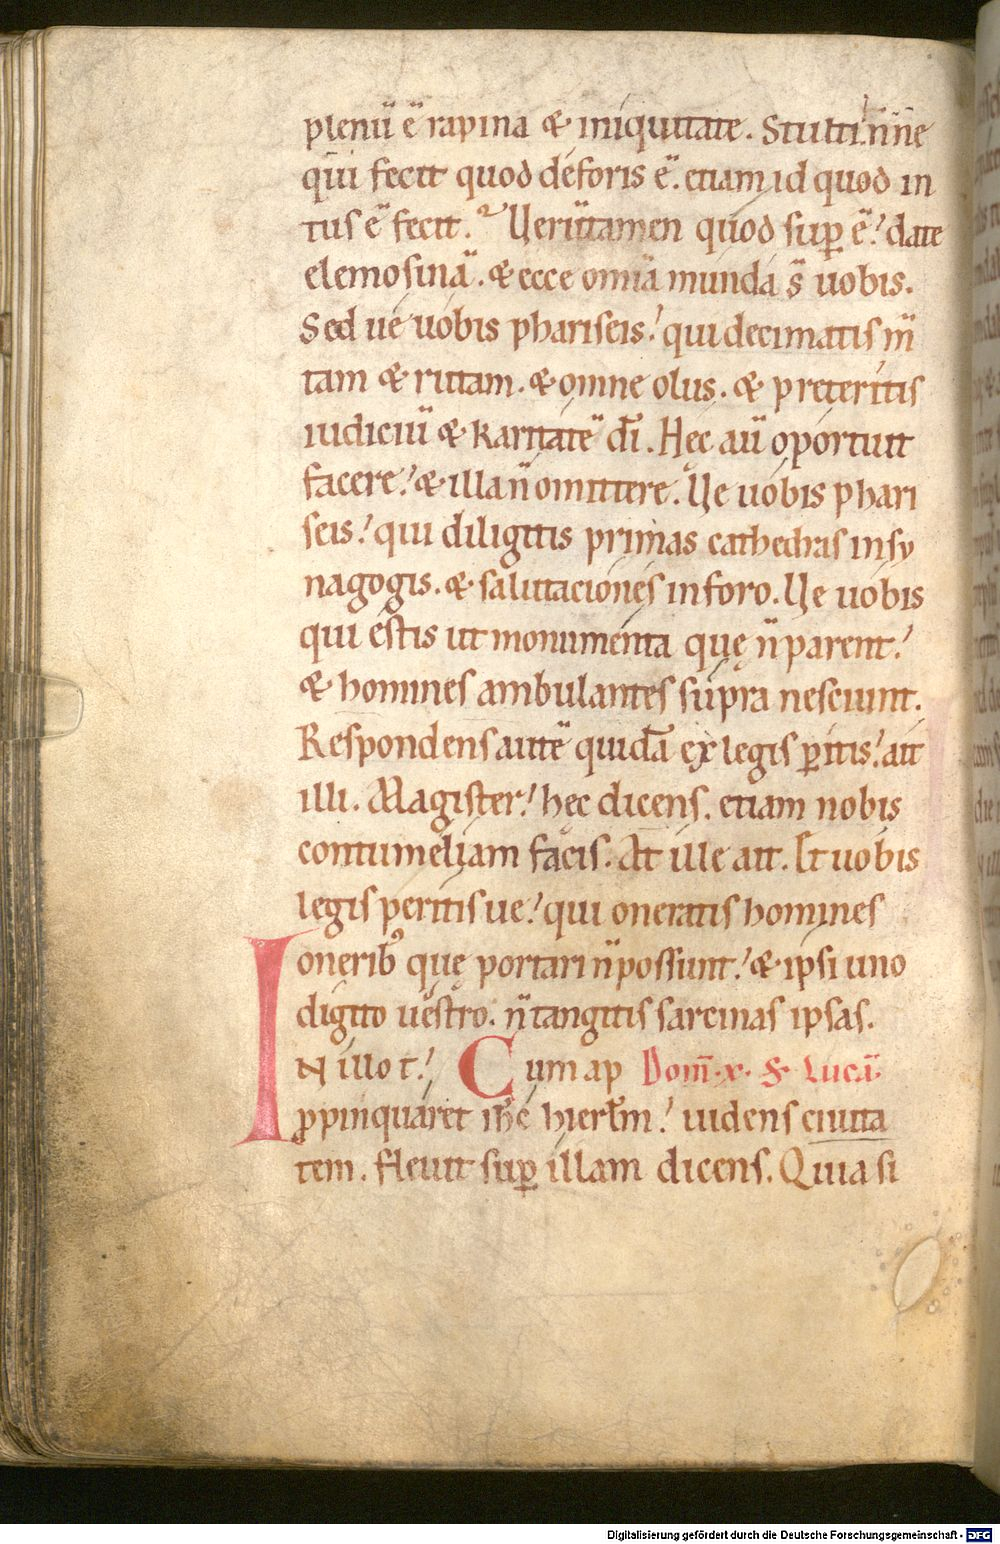 plenū ē rapina & iniquitate. Stulti. nñe
qui fecit quod deforis ē. etiam id quod in
tus ē fecit. Uerūtamen quod suꝑ ē. date
elemosinā. & ecce omīa munda s̄ uobis.
Sed ue uobis phariseis. qui decimatis m̄
tam & rutam. & omne olus. & preteritis
iudiciū & karitatē dī. Hęc aū oportuit
facere. & illa n̄ omittere. Ue uobis phari
seis. qui diligitis primas cathedras in sy
nagogis. & salutaciones in foro. Ue uobis
qui estis ut monumenta quę n̄ parent.
& homines ambulantes supra nesciunt.
Respondens autē quidā ex legis ꝑitis. ait
illi. Magister. hęc dicens. etiam nobis
contumeliam facis. At ille ait. Et uobis
legis peritis ue. qui oneratis homines
onerib' quę portari n̄ possunt. & ipsi uno
digito uēstro. n̄ tangitis sarcinas ipsas.
IN illo t. Cum ap Dom̄. x. S. Lucā.
ꝓpinquaret ihc̄ hierłm. uidens ciuita
tem. fleuit suꝑ illam dicens. Quia si
Digitalisierung gefördert durch die Deutsche Forschungsgemeinschaft - DFG